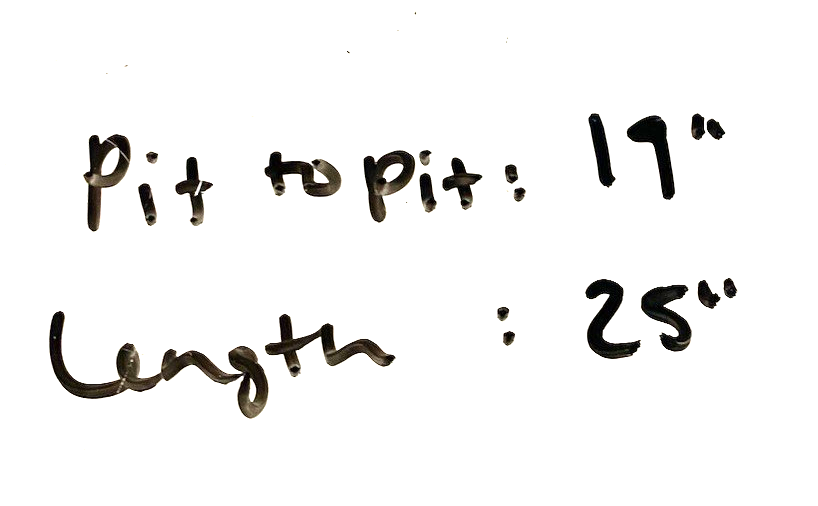 Pit to pit: 19"
Length : 25"